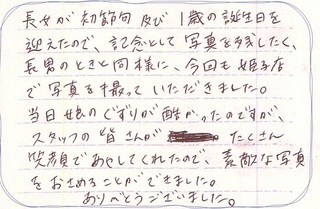 長女が初節句及び1歳の誕生日を
迎えたので、記念として写真を残したく、
長男のときと同様に、今回も姫子店
で写真を撮っていただきました。
当日娘のぐずりが酷かったのですが、
スタッフの皆さんが たくさん
笑顔であやしてくれたので、素敵な写真
をおさめることができました。
ありがとうございました。